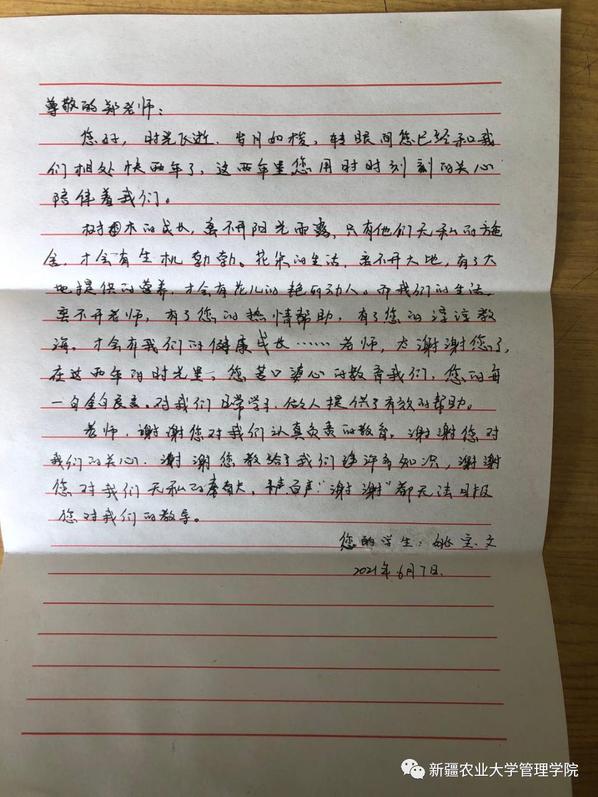 尊敬的郑老师：
您好，时光飞逝，岁月如梭，转眼间您已经和我
们相处快两年了，这两年里您用时时刻刻的关心
陪伴着我们。
树木的成长，离不开阳光雨露，只有他们无私的施
舍，才会有生机勃勃。花朵的生活，离不开大地，有了大
地提供的营养，才会有花儿的艳丽动人。而我们的生活
离不开老师，有了您的热情帮助，有了您的谆谆教
诲，才会有我们的健康成长……老师，太谢谢您了，
在这两年的时光里，您苦口婆心的教育我们，您的每
一句金玉良言，对我们日常学习，做人提供了有效的帮助。
老师，谢谢您对我们认真负责的教育，谢谢您对
我们的关心，谢谢您教给了我们许多知识，谢谢
您对我们无私的奉献，千声百声“谢谢”都无法回报
您对我们的教导。
您的学生：姚宝文
2021年6月7日
新疆农业大学管理学院